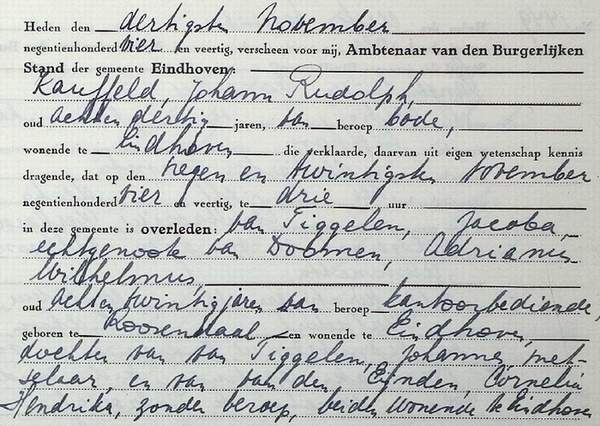 Heden den dertigsten November
negentienhonderd vier en veertig, verscheen voor mij, Ambtenaar van den Burgerlijken
Stand der gemeente Eindhoven:
Kauffeld, Johann Rudolph,
oud achtendertig jaren, van beroep bode,
wonende te Eindhoven die verklaarde, daarvan uit eigen wetenschap kennis
dragende, dat op den negen en twintigsten November
negentienhonderd vier en veertig, te drie uur
in deze gemeente is overleden: van Tiggelen, Jacoba,
echtgenoote van Doomen, Adrianus
Wilhelmus,
oud achten twintig jaren van beroep kantoorbediende,
geboren te Roosendaal en wonende te Eindhoven,
dochter van van Tiggelen, Johannes, met-
selaar, en van van den Eijnden, Cornelia
Hendrika, zonder beroep, beiden wonende te Eindhoven